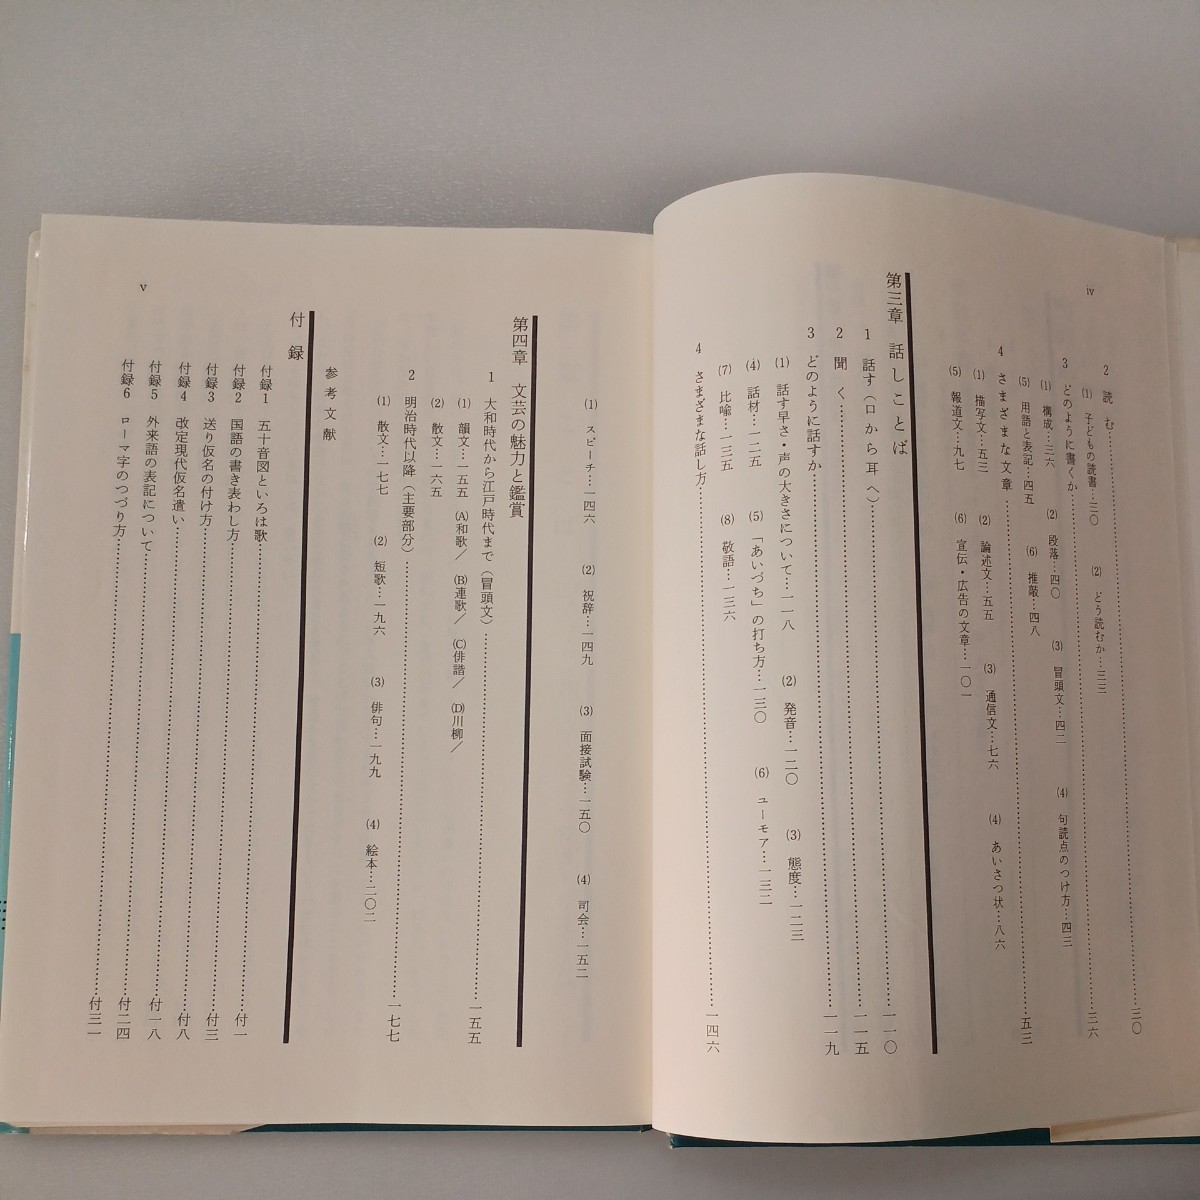 iv
2 読む……三〇
(1) 子どもの読書…三〇 (2) どう読むか…三三
3 どのように書くか……三六
(1) 構成…三六 (2) 段落…四〇 (3) 冒頭文…四二 (4) 句読点のつけ方…四三
(5) 用語と表記…四五 (6) 推敲…四八
4 さまざまな文章……五三
(1) 描写文…五三 (2) 論述文…五五 (3) 通信文…七六 (4) あいさつ状…八六
(5) 報道文…九七 (6) 宣伝・広告の文章…一〇一
第三章 話しことば
1 話す(口から耳へ)……一一〇
2 聞く……一一五
3 どのように話すか……一一九
(1) 話す早さ・声の大きさについて…一一八 (2) 発音…一二〇 (3) 態度…一二三
(4) 話材…一二五 (5) 「あいづち」の打ち方…一三〇 (6) ユーモア…一三二
(7) 比喩…一三五 (8) 敬語…一三六
4 さまざまな話し方……一四六
(1) スピーチ…一四六 (2) 祝辞…一四九 (3) 面接試験…一五〇 (4) 司会…一五二
第四章 文芸の魅力と鑑賞
1 大和時代から江戸時代まで(冒頭文)……一五五
(1) 韻文…一五五 (A)和歌/ (B)連歌/ (C)俳諧/ (D)川柳/
(2) 散文…一六五
2 明治時代以降(主要部分)……一七七
(1) 散文…一七七 (2) 短歌…一九六 (3) 俳句…一九九 (4) 絵本…二〇二
参考文献
付録
付録1 五十音図といろは歌……付一
付録2 国語の書き表わし方……付三
付録3 送り仮名の付け方……付八
付録4 改定現代仮名遣い……付一八
付録5 外来語の表記について……付二四
付録6 ローマ字のつづり方……付三一
v